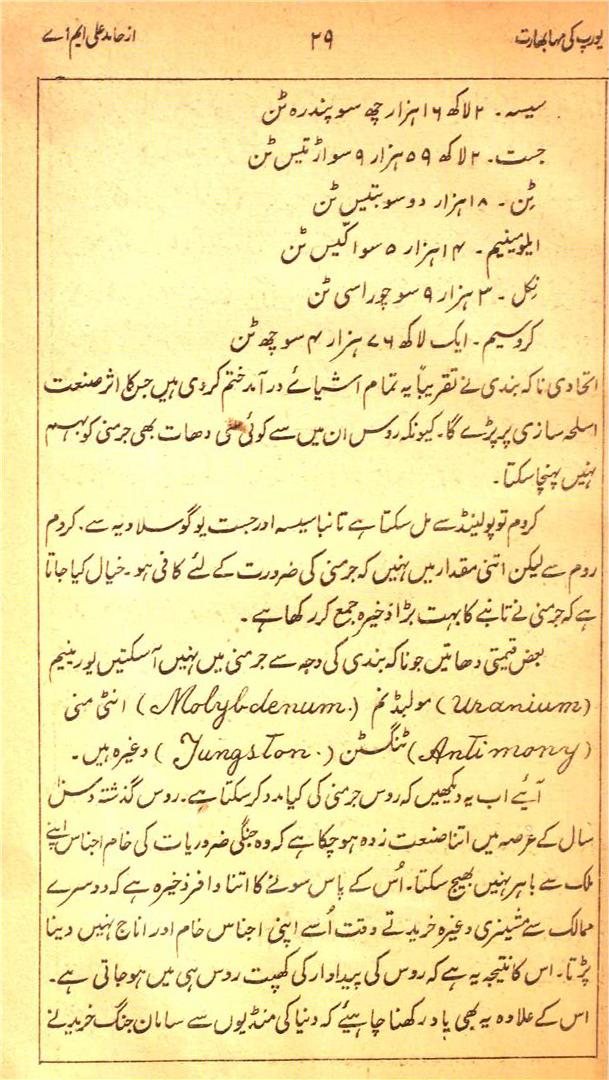 یورپ کی مہابھارت ۲۹ از حامد علی ایم اے
سیسہ۔ ۲ لاکھ ۱۶ ہزار چھ سو پندرہ ٹن
جست۔ ۲ لاکھ ۵۹ ہزار ۹ سو اڑتیس ٹن
ٹِن۔ ۱۸ ہزار دو سو بتیس ٹن
ایلومینیم۔ ۱۴ ہزار ۵ سو اکّیس ٹن
نِکل۔ ۳ ہزار ۹ سو چوراسی ٹن
کروسیم۔ ایک لاکھ ۷۶ ہزار ۴ سو چھ ٹن
اتحادی ناکہ بندی نے تقریباً یہ تمام اشیائے درآمد ختم کردی ہیں جس کا اثر صنعت
اسلحہ سازی پر پڑے گا۔ کیونکہ روس ان میں سے کوئی سی دھات بھی جرمنی کو بہم
نہیں پہنچا سکتا۔
کروم تو پولینڈ سے مل سکتا ہے تانبا سیسہ اور جست یوگوسلاویہ سے۔ کروم
روم سے لیکن اتنی مقدار میں نہیں کہ جرمنی کی ضرورت کے لئے کافی ہو۔ خیال کیا جاتا
ہے کہ جرمنی نے تانبے کا بہت بڑا ذخیرہ جمع کر رکھا ہے۔
بعض قیمتی دھاتیں جو ناکہ بندی کی وجہ سے جرمنی میں نہیں آ سکتیں یورینیم
(Uranium) مولبڈنم (Molybdenum.) انٹی منی
(Antimony) ٹنگسٹن (Jungston.) وغیرہ ہیں۔
آیئے اب یہ دیکھیں کہ روس جرمنی کی کیا مدد کرسکتا ہے۔ روس گذشتہ دس
سال کے عرصہ میں اتنا صنعت زدہ ہو چکا ہے کہ وہ جنگی ضروریات کی خام اجناس اپنے
ملک سے باہر نہیں بھیج سکتا۔ اُس کے پاس سونے کا اتنا وافر ذخیرہ ہے کہ دوسرے
ممالک سے مشینری وغیرہ خریدتے وقت اُسے اپنی اجناس خام اور اناج نہیں دینا
پڑتا۔ اس کا نتیجہ یہ ہے کہ روس کی پیداوار کی کھپت روس ہی میں ہو جاتی ہے۔
اس کے علاوہ یہ بھی یاد رکھنا چاہیئے کہ دنیا کی منڈیوں سے سامان جنگ خریدنے